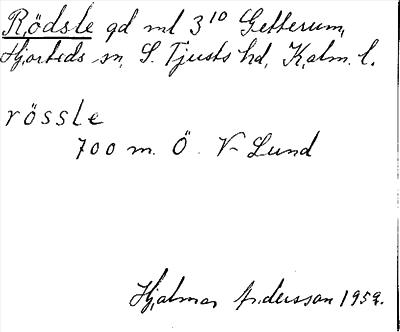 Rödsle gd ml 3¹⁰ Getterum,
Hjorteds sn, S. Tjusts hd, Kalm. l.
rössle
700 m. Ö. V- Lund
Hjalmar Andersson 1959.